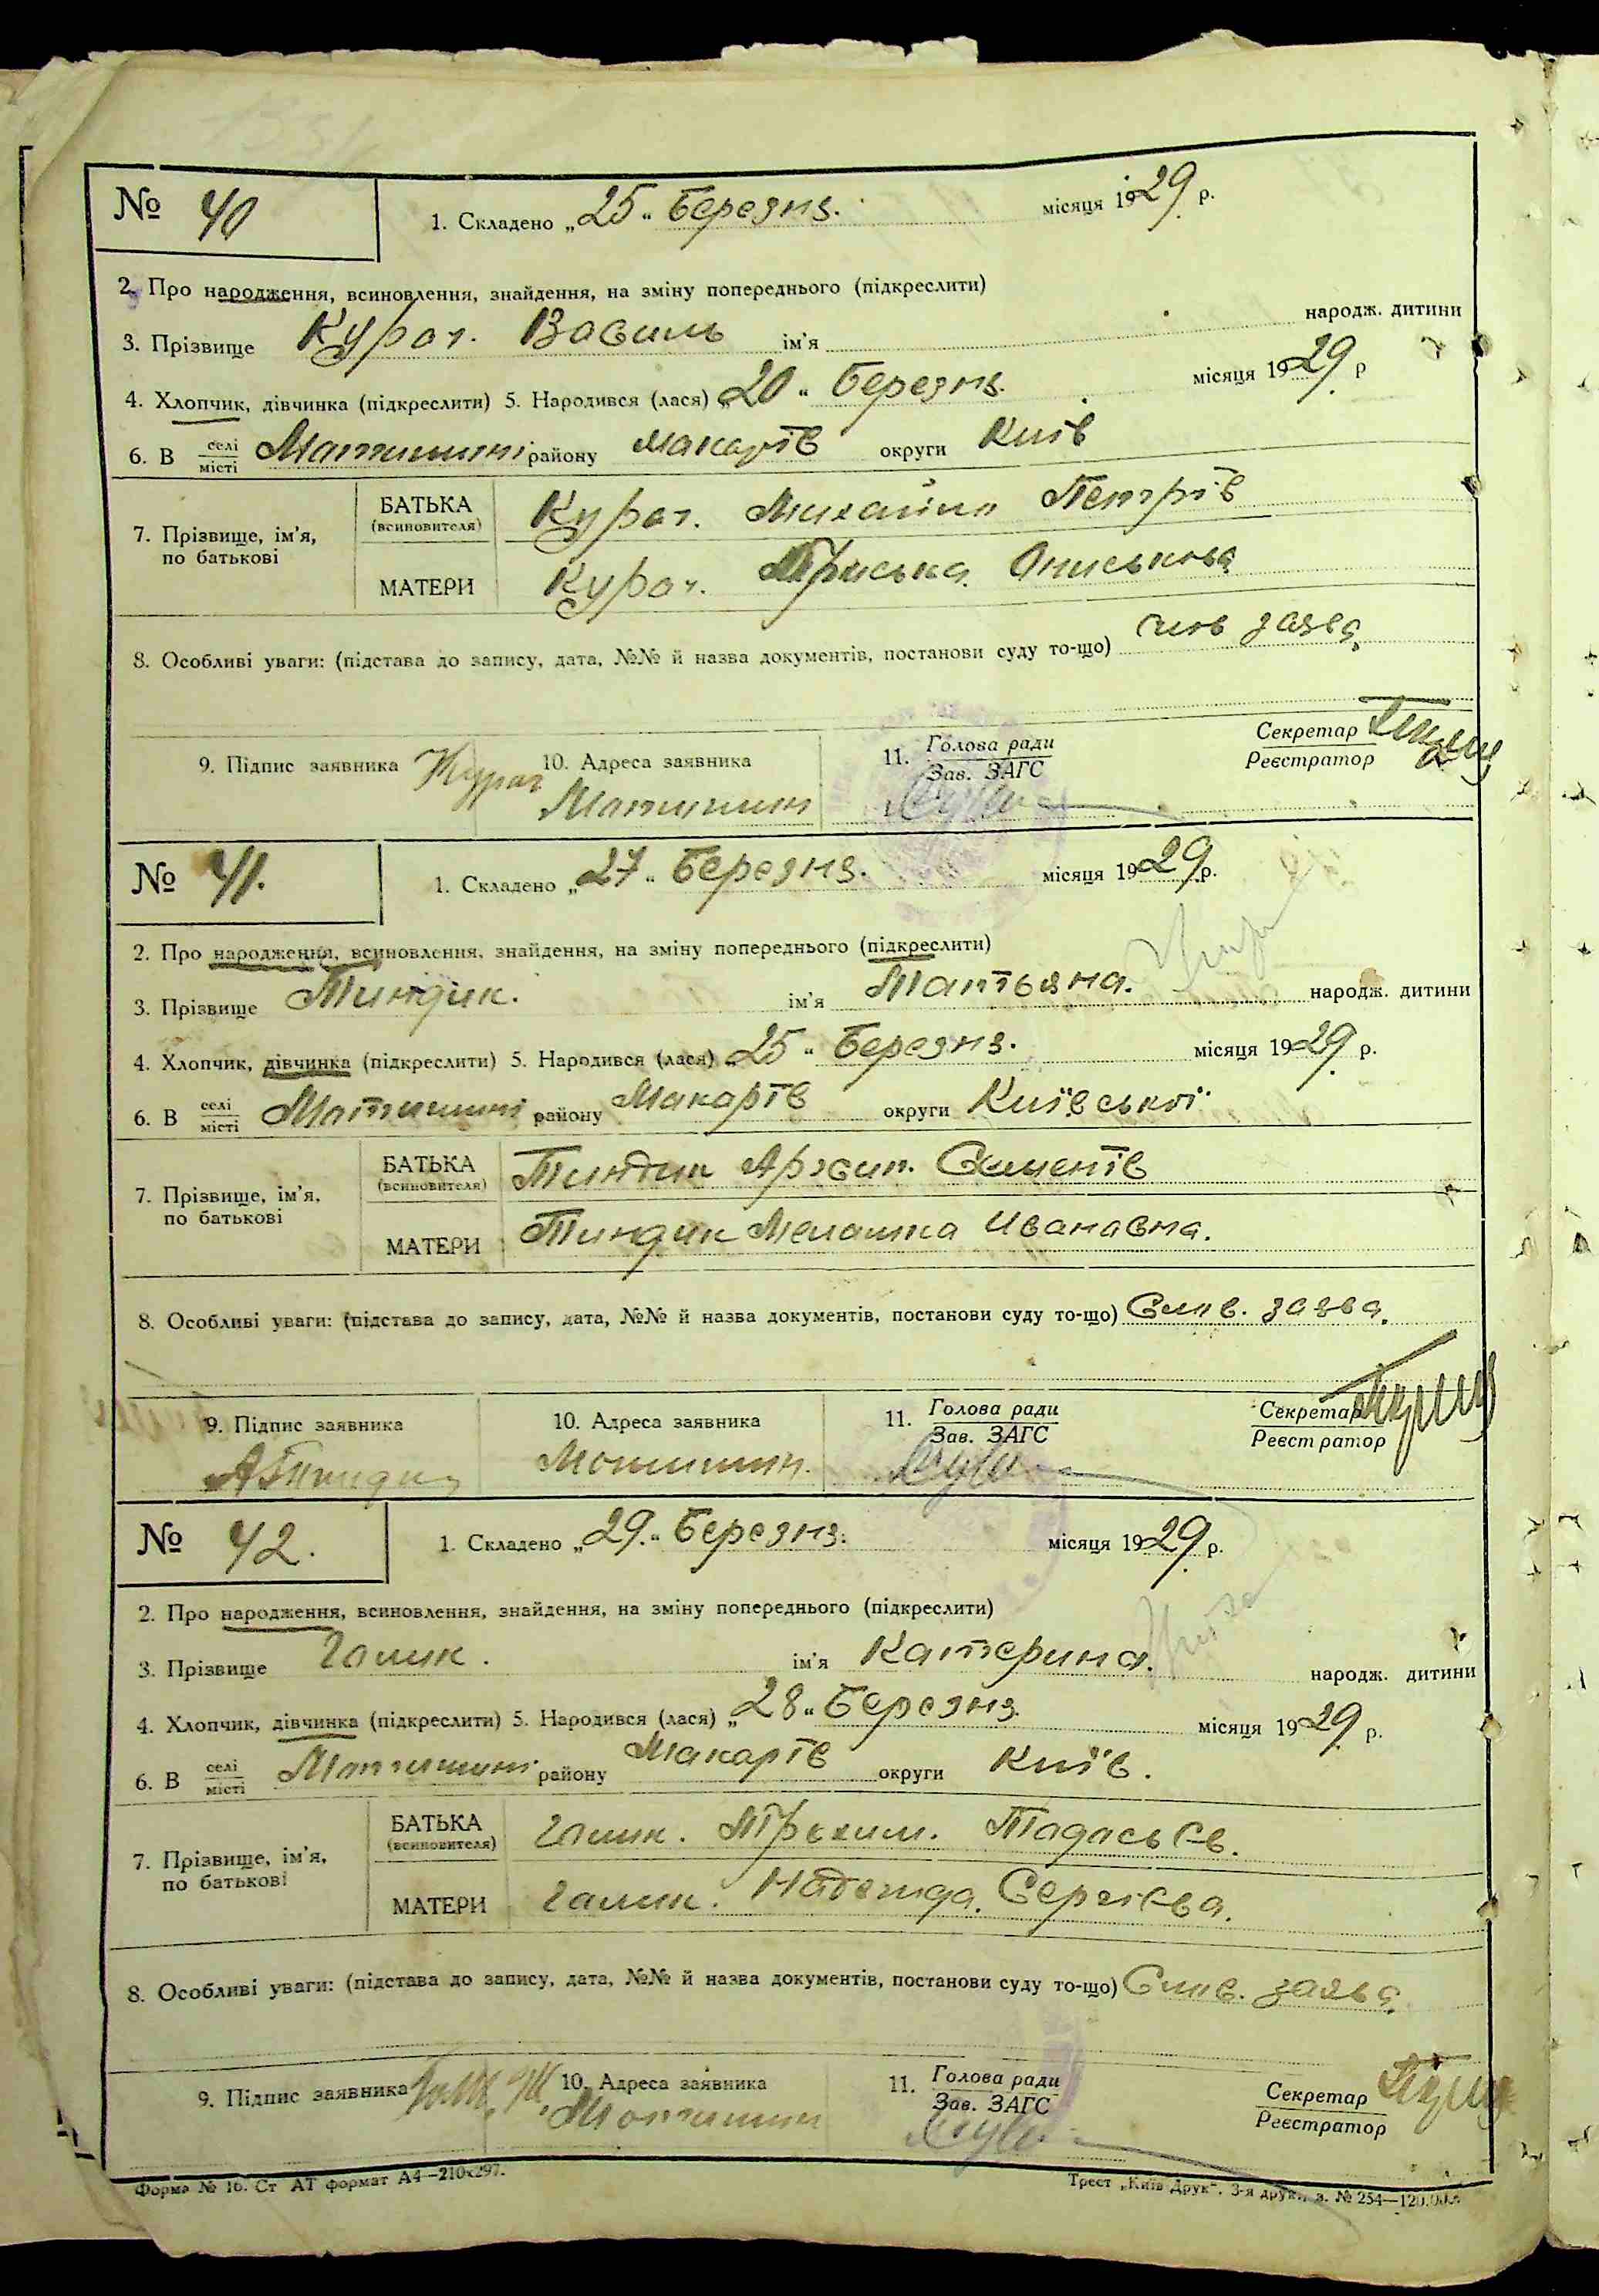 № 40
1. Складено „25“ Березня. місяця 1929 р.
2. Про народження, всиновлення, знайдення, на зміну попереднього (підкреслити)
3. Прізвище Курач. Василь ім'я народж. дитини
4. Хлопчик, дівчинка (підкреслити) 5. Народився (лася) „20“ Березня. місяця 1929 р
6. В селі місті Мотижині району Макарів округи Київ
7. Прізвище, ім'я, по батькові
БАТЬКА (всиновителя) Курач. Михайло Петрів
МАТЕРИ Курач. Ониськова
8. Особливі уваги: (підстава до запису, дата, №№ й назва документів, постанови суду то-що) слов заява
9. Підпис заявника Курач 10. Адреса заявника 11. Голова ради Зав. ЗАГС Секретар Реєстратор
Мотижин
№ 41.
1. Складено „27“ Березня. місяця 1929 р.
2. Про народження, всиновлення, знайдення, на зміну попереднього (підкреслити)
3. Прізвище Тиндик. ім'я Татьяна. народж. дитини
4. Хлопчик, дівчинка (підкреслити) 5. Народився (лася) „25“ Березня. місяця 1929 р.
6. В селі місті Мотижині району Макарів округи Київської
7. Прізвище, ім'я, по батькові
БАТЬКА (всиновителя) Тиндик Архип. Семенів
МАТЕРИ Тиндик Мелашка Ивановна.
8. Особливі уваги: (підстава до запису, дата, №№ й назва документів, постанови суду то-що) Слов. заява.
9. Підпис заявника 10. Адреса заявника 11. Голова ради Зав. ЗАГС Секретар Реєстратор
Мотижин.
№ 42.
1. Складено „29.“ Березня. місяця 1929 р.
2. Про народження, всиновлення, знайдення, на зміну попереднього (підкреслити)
3. Прізвище Галик. ім'я Катерина. народж. дитини
4. Хлопчик, дівчинка (підкреслити) 5. Народився (лася) „28“ Березня. місяця 1929 р.
6. В селі місті Мотижині району Макарів округи Київ.
7. Прізвище, ім'я, по батькові
БАТЬКА (всиновителя) Галик. Трохим. Тодосьєв.
МАТЕРИ Галик. Надежда. Сергієва.
8. Особливі уваги: (підстава до запису, дата, №№ й назва документів, постанови суду то-що) Слов. заява
9. Підпис заявника 10. Адреса заявника 11. Голова ради Зав. ЗАГС Секретар Реєстратор
Мотижин
Форма № 16. Ст АТ формат А4—210x297.
Трест „Київ Друк“, 3-я друк., з. № 254—120.00